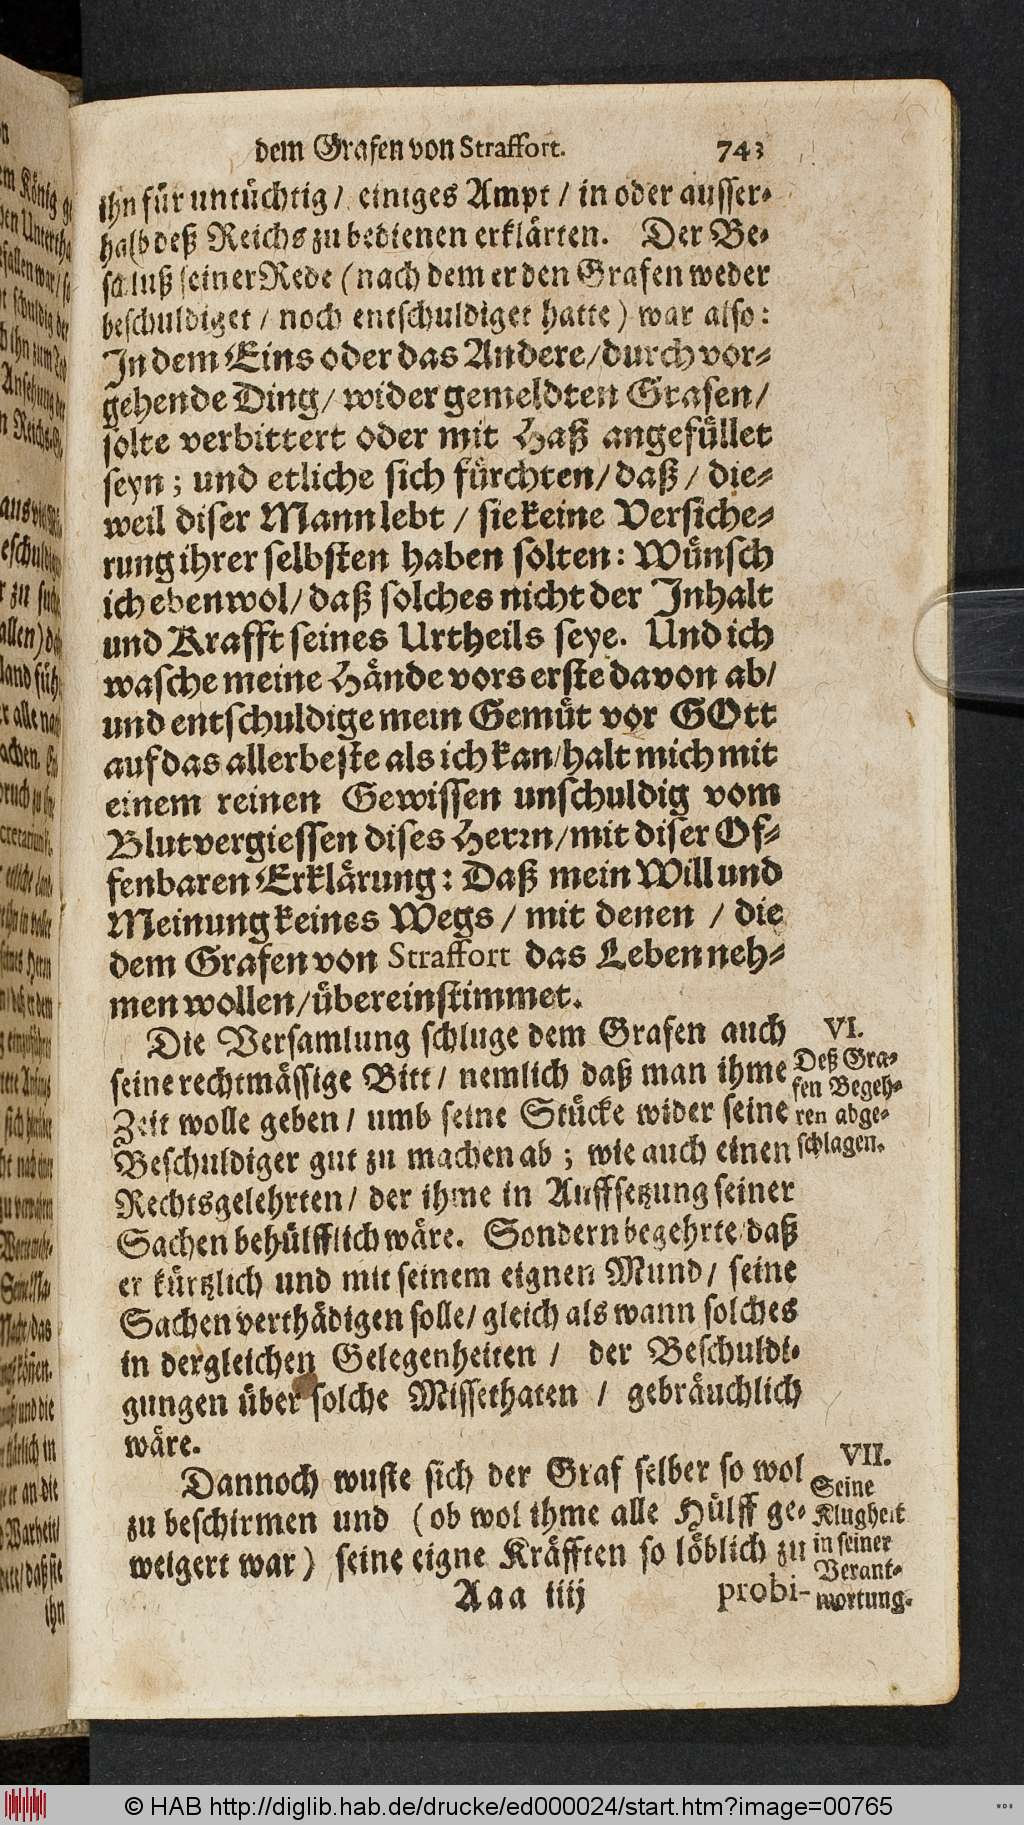 dem Grafen von Straffort. 743
ihn für untüchtig / einiges Ampt / in oder ausser-
halb deß Reichs zu bedienen erklärten. Der Be-
schluß seiner Rede (nach dem er den Grafen weder
beschuldiget / noch entschuldiget hatte) war also:
In dem Eins oder das Andere / durch vor-
gehende Ding / wider gemeldten Grafen /
solte verbittert oder mit Haß angefüllet
seyn; und etliche sich fürchten / daß / die-
weil diser Mann lebt / sie keine Versiche-
rung ihrer selbsten haben solten: Wünsch
ich ebenwol / daß solches nicht der Inhalt
und Krafft seines Urtheils seye. Und ich
wasche meine Hände vors erste davon ab /
und entschuldige mein Gemüt vor GOtt
auf das allerbeste als ich kan / halt mich mit
einem reinen Gewissen unschuldig vom
Blutvergiessen dises Herrn / mit diser Of-
fenbaren Erklärung: Daß mein Will und
Meinung keines Wegs / mit denen / die
dem Grafen von Straffort das Leben neh-
men wollen / übereinstimmet.
Die Versamlung schluge dem Grafen auch
seine rechtmässige Bitt / nemlich daß man ihme
Zeit wolle geben / umb seine Stücke wider seine
Beschuldiger gut zu machen ab; wie auch einen
Rechtsgelehrten / der ihme in Auffsetzung seiner
Sachen behülfflich wäre. Sondern begehrte / daß
er kürtzlich und mit seinem eignen Mund / seine
Sachen verthädigen solle / gleich als wann solches
in dergleichen Gelegenheiten / der Beschuldi-
gungen über solche Missethaten / gebräuchlich
wäre.
VI.
Deß Gra-
fen Begeh-
ren abge-
schlagen.
Dannoch wuste sich der Graf selber so wol
zu beschirmen und (ob wol ihme alle Hülff ge-
weigert war) seine eigne Kräfften so löblich zu
VII.
Seine
Klugheit
in seiner
Verant-
wortung.
Aaa iiij probi-
© HAB http://diglib.hab.de/drucke/ed000024/start.htm?image=00765